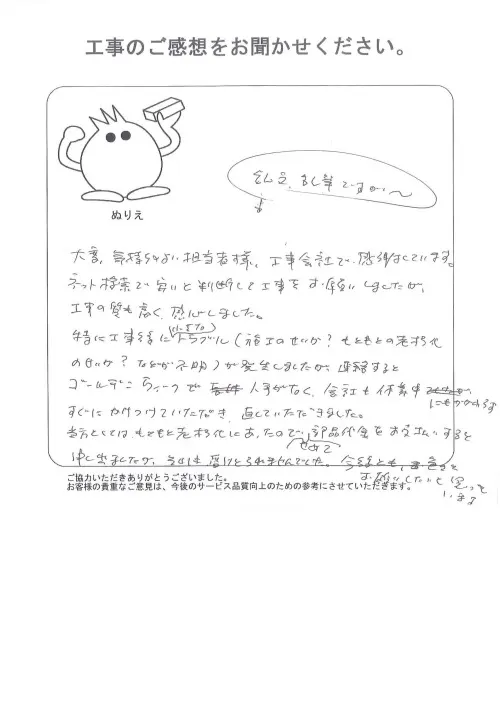 工事のご感想をお聞かせください。
ぬりえ
乱文、乱筆ですが〜
大変、気持ちよい担当者様、工事会社で、感謝しています。
ネット検索で安いと判断して工事をお願いしましたが、
工事の質も高く、感心しました。
特に工事後に小さなトラブル(施工のせいか?もともとの老朽化
のせいか?などが不明)が発生しましたが、連絡すると
ゴールデンウィークで 人手がなく、会社も休業中にもかかわらず
すぐにかけつけていただき、直していただきました。
としてはもともと老朽化にあったので、せめて部品代金をお支払いすると
申し出ましたが、受けとられませんでした。今後とも、
お願いしたいと思って
います
ご協力いただきありがとうございました。
お客様の貴重なご意見は、今後のサービス品質向上のための参考にさせていただきます。